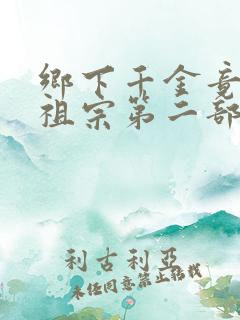 鄉下千金竟
祖宗第二部
利古利亞
未經同意禁止轉載